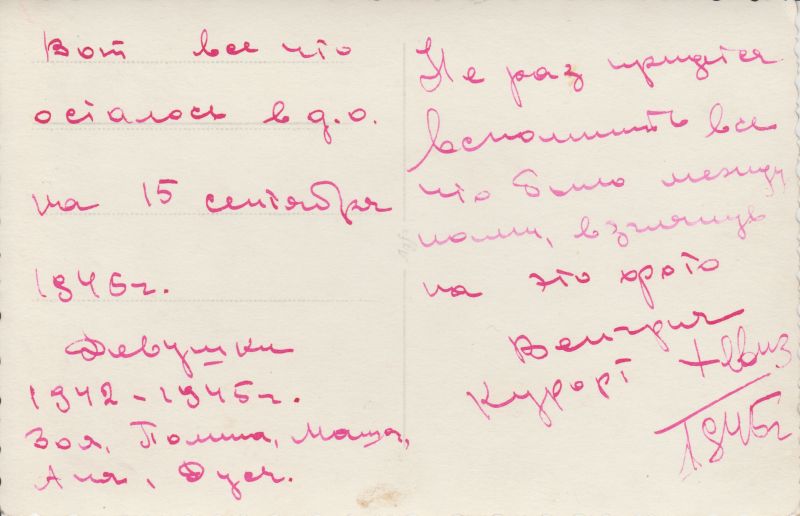 Вот все что
осталось в д.о.
на 15 сентября
1945г.
Девушки
1942-1945г.
Зоя, Полина, Маша,
Аня, Дуся.
Не раз придется
вспомнить все
что было между
нами, взглянув
на это фото
Венгрия
Курорт
1945г